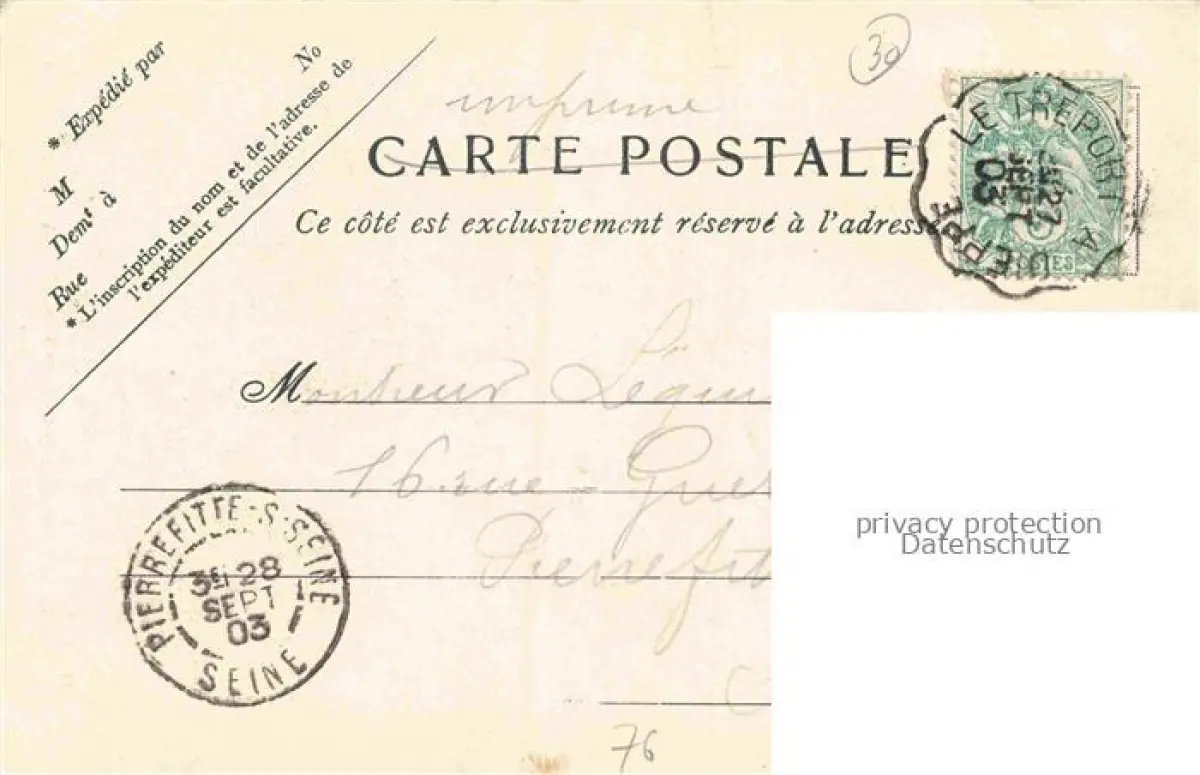 * Expédié par
No
M
Demt à
Rue
* L'inscription du nom et de l'adresse de
l'expéditeur est facultative.
30
imprimé
CARTE POSTALE
Ce côté est exclusivement réservé à l'adresse
LE TREPORT A DIEPPE
27
SEPT
03
Monsieur Lequi
16 rue - Gue
Pierrefit
PIERREFITTE-S-SEINE
3E 28
SEPT
03
SEINE
76
privacy protection
Datenschutz